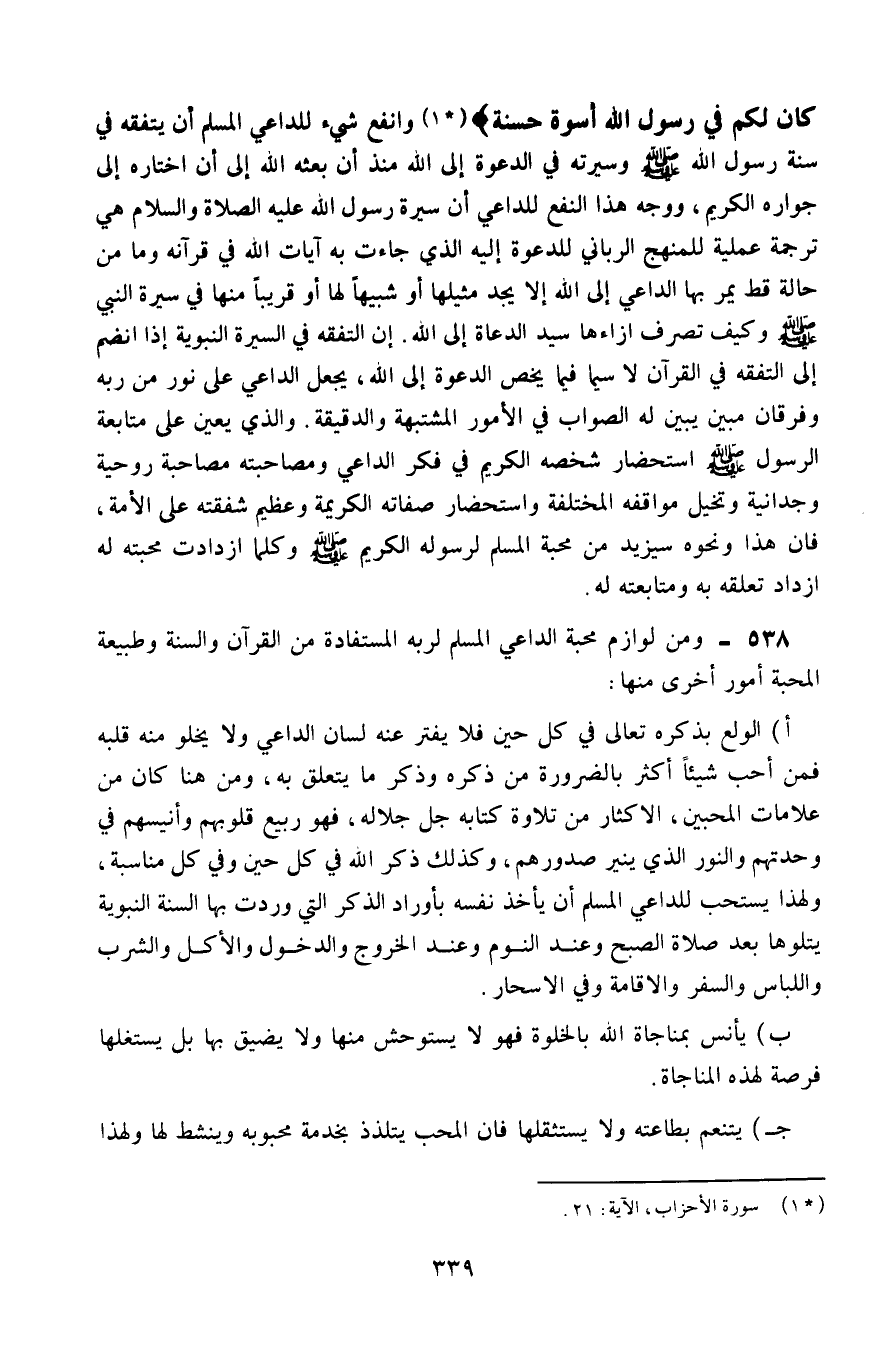 كان لكم في رسول الله أسوة حسنة﴾(*١) وانفع شيء للداعي المسلم أن يتفقه في
سنة رسول الله ﷺ وسيرته في الدعوة إلى الله منذ أن بعثه الله إلى أن اختاره إلى
جواره الكريم، ووجه هذا النفع للداعي أن سيرة رسول الله عليه الصلاة والسلام هي
ترجمة عملية للمنهج الرباني للدعوة إليه الذي جاءت به آيات الله في قرآنه وما من
حالة قط يمر بها الداعي إلى الله إلا يجد مثيلها أو شبيهاً لها أو قريباً منها في سيرة النبي
ﷺ وكيف تصرف ازاءها سيد الدعاة إلى الله. إن التفقه في السيرة النبوية إذا انضم
إلى التفقه في القرآن لا سيما فيما يخص الدعوة إلى الله، يجعل الداعي على نور من ربه
وفرقان مبين يبين له الصواب في الأمور المشتبهة والدقيقة. والذي يعين على متابعة
الرسول ﷺ استحضار شخصه الكريم في فكر الداعي ومصاحبته مصاحبة روحية
وجدانية وتخيل مواقفه المختلفة واستحضار صفاته الكريمة وعظيم شفقته على الأمة،
فان هذا ونحوه سيزيد من محبة المسلم لرسوله الكريم ﷺ وكلما ازدادت محبته له
ازداد تعلقه به ومتابعته له.
٥٣٨ ـ ومن لوازم محبة الداعي المسلم لربه المستفادة من القرآن والسنة وطبيعة
المحبة أمور أخرى منها:
أ) الولع بذكره تعالى في كل حين فلا يفتر عنه لسان الداعي ولا يخلو منه قلبه
فمن أحب شيئاً أكثر بالضرورة من ذكره وذكر ما يتعلق به، ومن هنا كان من
علامات المحبين، الاكثار من تلاوة كتابه جل جلاله، فهو ربيع قلوبهم وأنيسهم في
وحدتهم والنور الذي ينير صدورهم، وكذلك ذكر الله في كل حين وفي كل مناسبة،
ولهذا يستحب للداعي المسلم أن يأخذ نفسه بأوراد الذكر التي وردت بها السنة النبوية
يتلوها بعد صلاة الصبح وعنـد النـوم وعنـد الخروج والدخـول والأكـل والشرب
واللباس والسفر والاقامة وفي الاسحار.
ب) يأنس بمناجاة الله بالخلوة فهو لا يستوحش منها ولا يضيق بها بل يستغلها
فرصة لهذه المناجاة.
جـ) يتنعم بطاعته ولا يستثقلها فان المحب يتلذذ بخدمة محبوبه وينشط لها ولهذا
(*١) سورة الأحزاب، الآية: ٢١.
٣٣٩